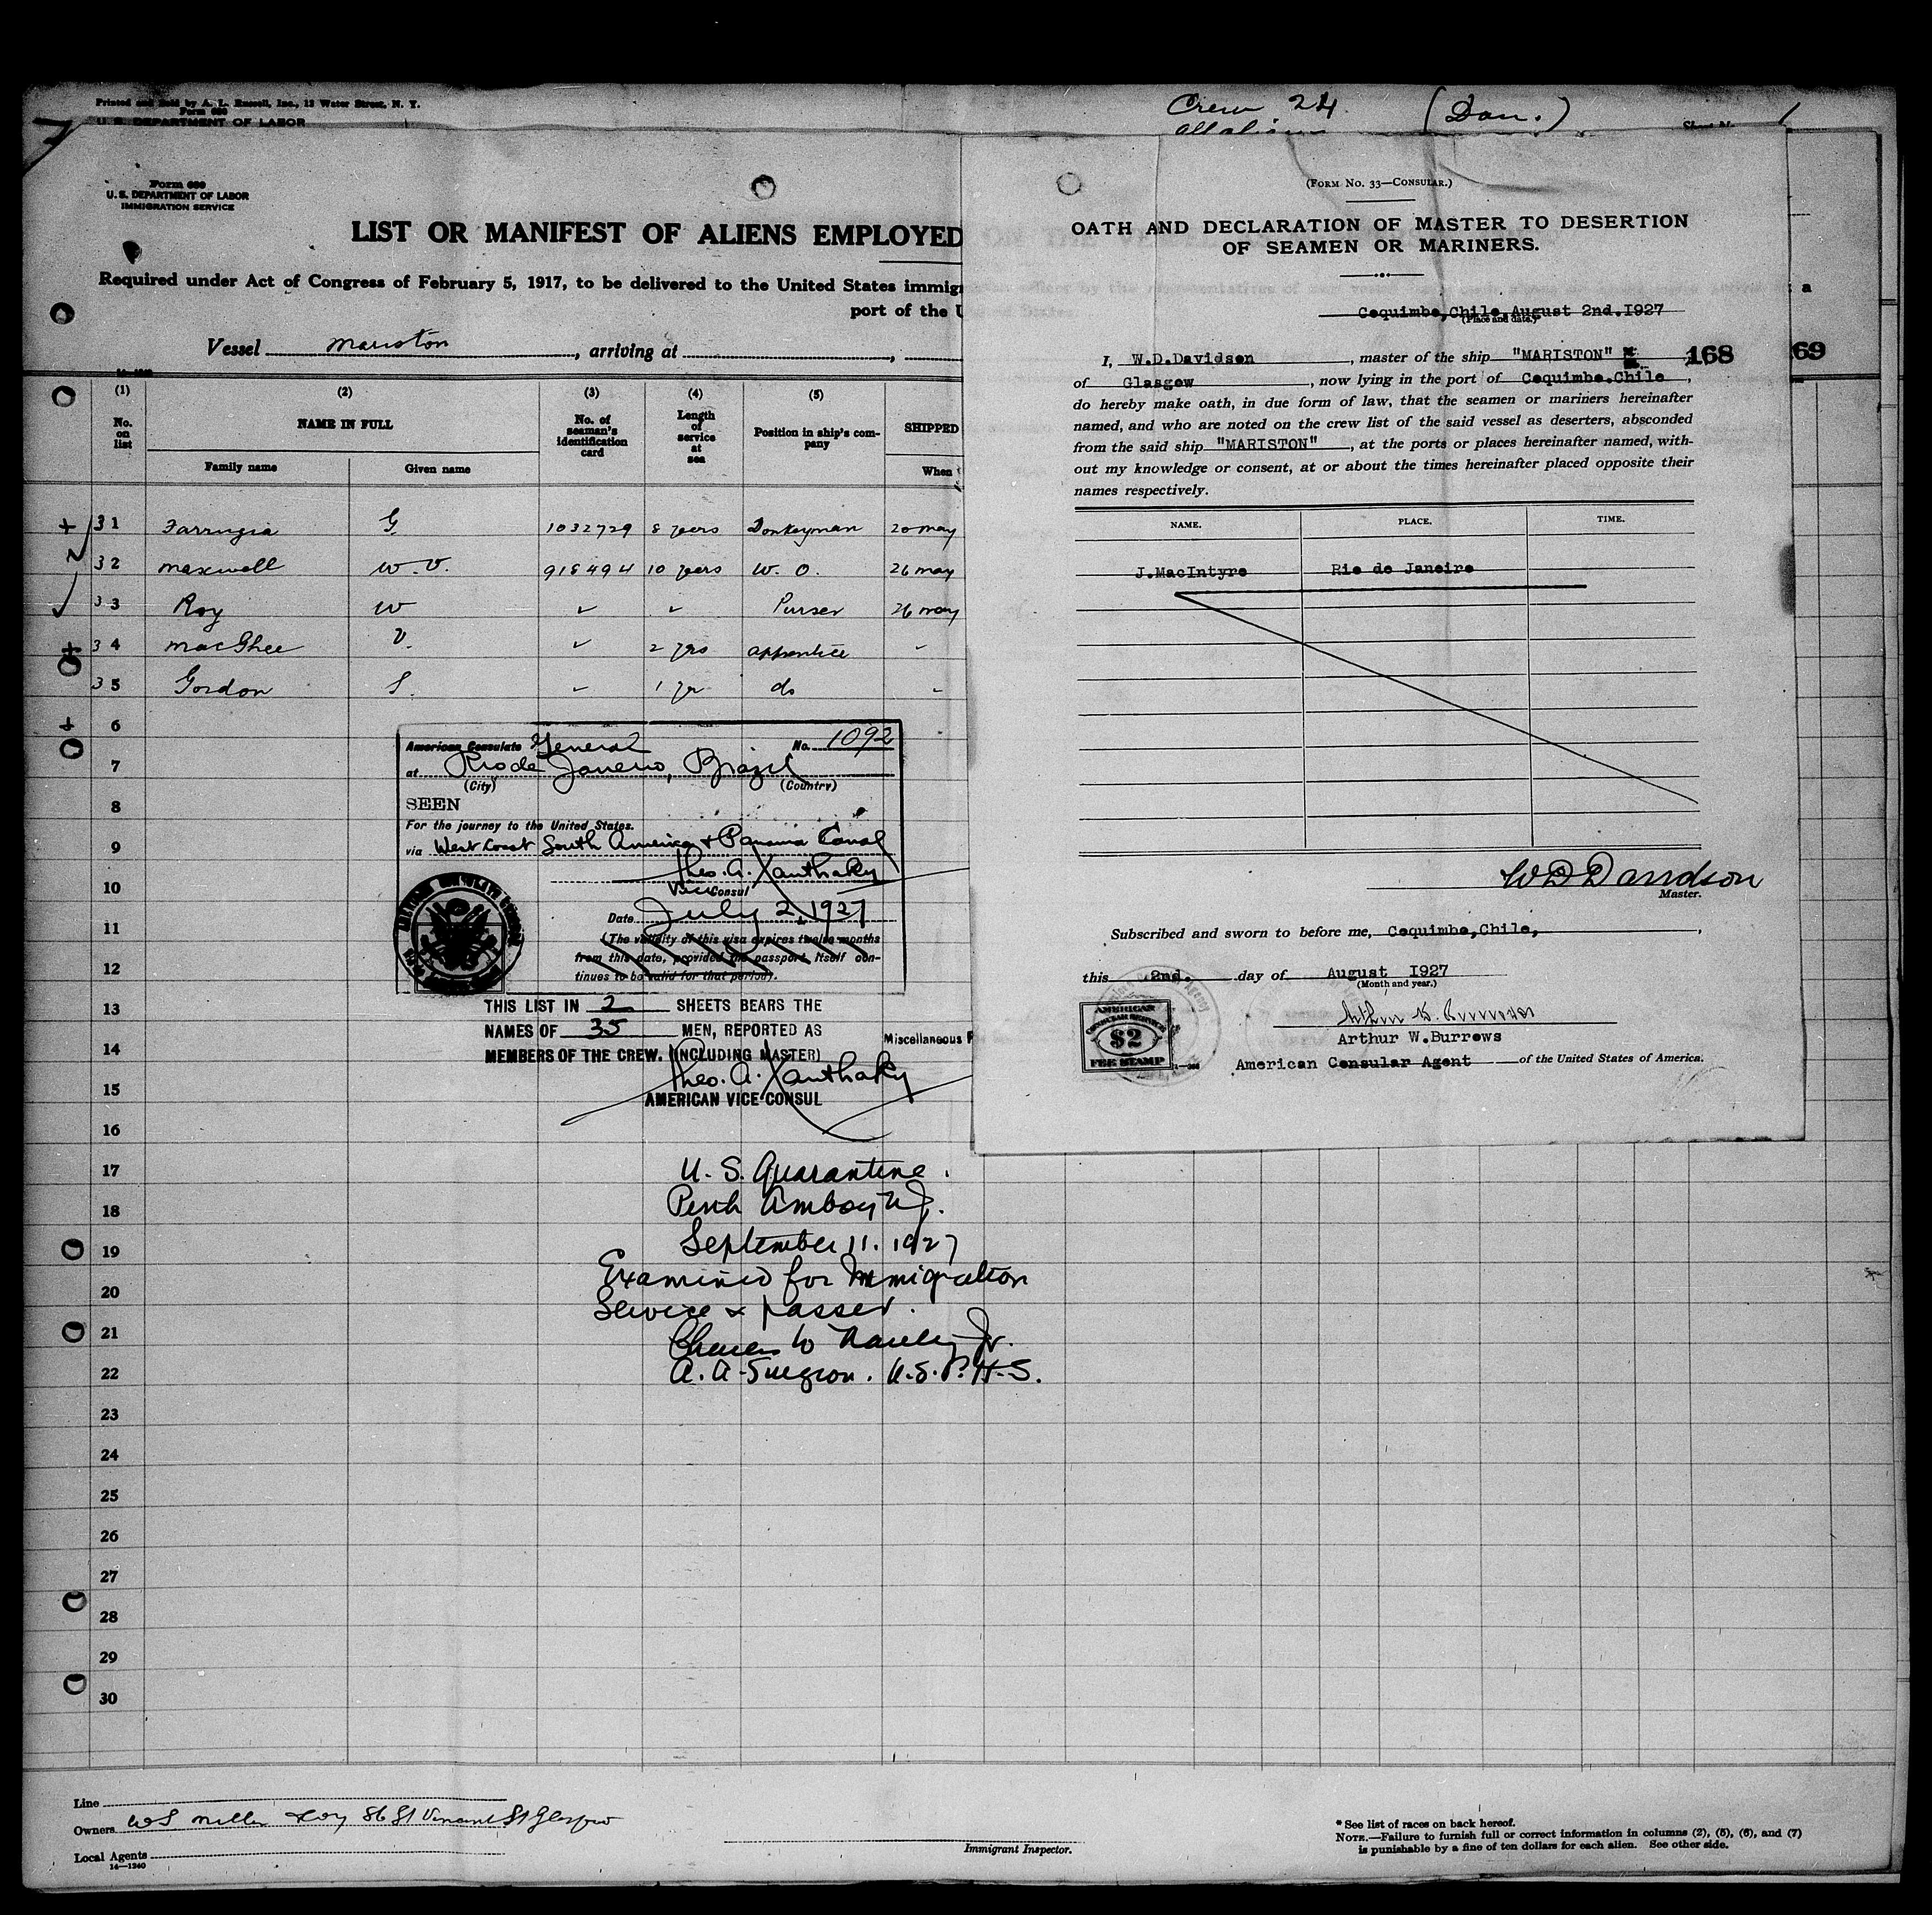 Printed and Sold by A. L. Russell, Inc., 12 Water Street, N. Y.
Form 680
U. S. DEPARTMENT OF LABOR
Crew 24 (Dan.)
1
Form 680
U. S. DEPARTMENT OF LABOR
IMMIGRATION SERVICE
LIST OR MANIFEST OF ALIENS EMPLOYED
Required under Act of Congress of February 5, 1917, to be delivered to the United States immig
port of the U
Vessel Mariston, arriving at
(1) (2) (3) (4) (5)
No. on list
NAME IN FULL
Family name Given name
No. of seaman's identification card
Length of service at sea
Position in ship's company
SHIPPED
When
31 Farrugia G. 1032729 8 years Donkeyman 20 may
32 Maxwell W. V. 918494 10 years W. O. 26 may
33 Roy W Purser 26 may
34 MacGhee V. 2 yrs apprentice
35 Gordon S. 1 yr do
6
7
8
9
10
11
12
13
14
15
16
17
18
19
20
21
22
23
24
25
26
27
28
29
30
American Consulate General No. 1092
at Rio de Janeiro, Brazil
(City) (Country)
SEEN
For the journey to the United States.
via West Coast South America & Panama Canal
Theo. A. Xanthaky
Vice Consul
Date July 2, 1927
(The validity of this visa expires twelve months
from this date, provided the passport itself con-
tinues to be valid for that period).
THIS LIST IN 2 SHEETS BEARS THE
NAMES OF 35 MEN, REPORTED AS
MEMBERS OF THE CREW. (INCLUDING MASTER)
Theo. A. Xanthaky
AMERICAN VICE CONSUL
Miscellaneous F
U. S. Quarantine
Perth Amboy N.J.
September 11. 1927
Examined for Immigration
Service & passed.
A. A. Surgeon. U.S.P.H.S.
Line
Owners W S Miller & Coy 86 St Vincent St Glasgow
Local Agents
14—1240
Immigrant Inspector.
* See list of races on back hereof.
NOTE.—Failure to furnish full or correct information in columns (2), (5), (6), and (7)
is punishable by a fine of ten dollars for each alien. See other side.
(FORM NO. 33—CONSULAR.)
OATH AND DECLARATION OF MASTER TO DESERTION
OF SEAMEN OR MARINERS.
Coquimbo,Chile,August 2nd.1927
(Place and date.)
I, W.D.Davidson, master of the ship "MARISTON"
168
69
a
of Glasgow, now lying in the port of Coquimbo.Chile,
do hereby make oath, in due form of law, that the seamen or mariners hereinafter
named, and who are noted on the crew list of the said vessel as deserters, absconded
from the said ship "MARISTON", at the ports or places hereinafter named, with-
out my knowledge or consent, at or about the times hereinafter placed opposite their
names respectively.
NAME. PLACE. TIME.
J.MacIntyre Rio de Janeiro
W D Davidson
Master.
Subscribed and sworn to before me, Coquimbo,Chile,
this 2nd. day of August 1927
(Month and year.)
AMERICAN
CONSULAR SERVICE
$2
FEE STAMP
Arthur W.Burrows
American Consular Agent of the United States of America.